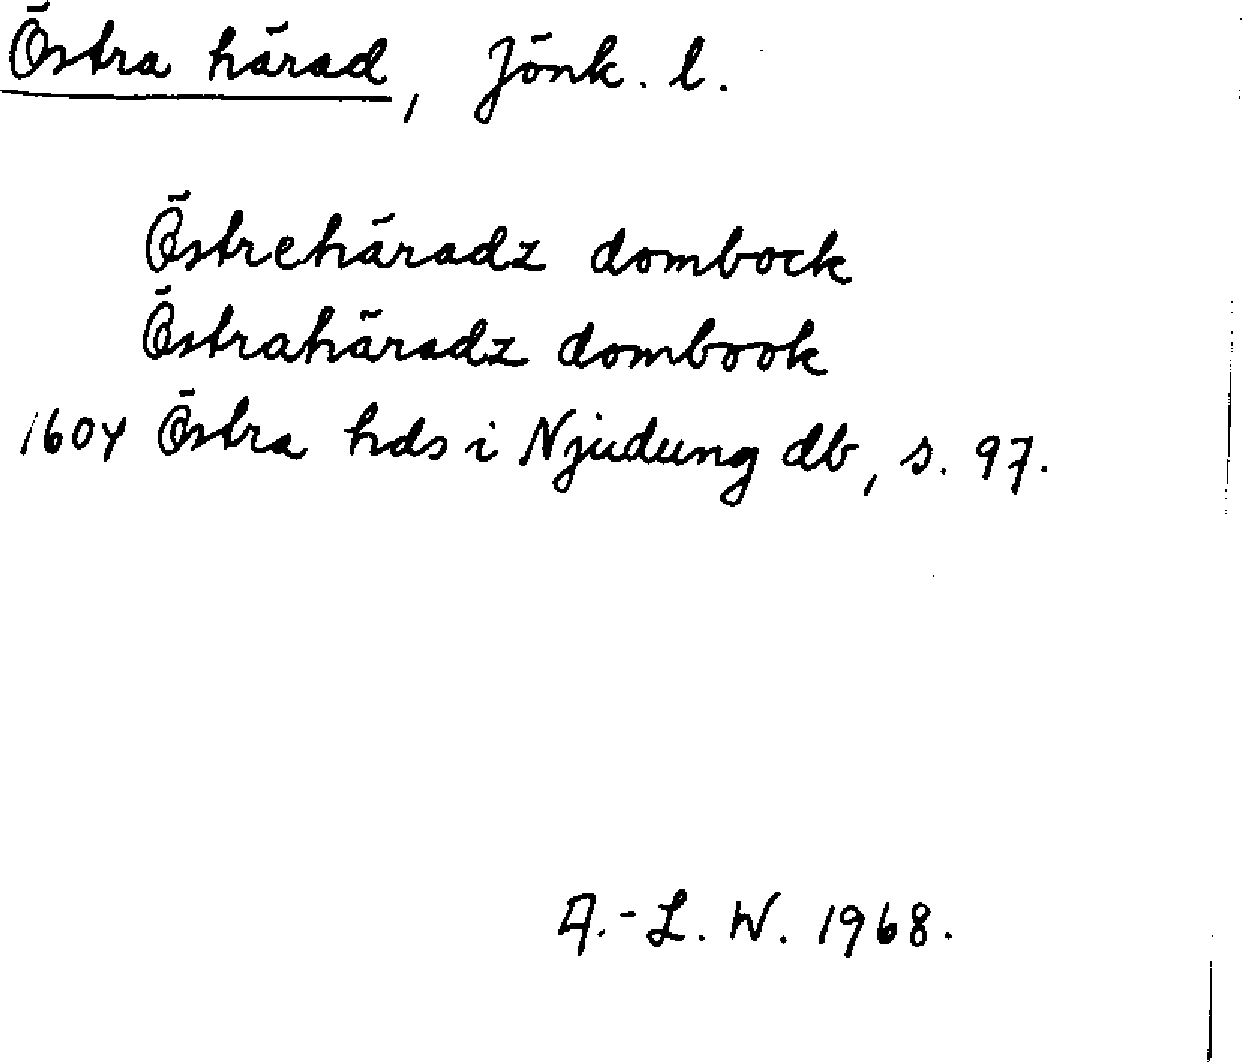 Östra härad, Jönk. l.
Östrehäradz dombock
Östrahäradz dombook
1604 Östra hds i Njudung db, s. 97.
A.-L. W. 1968.